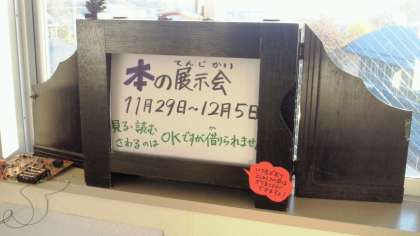 てんじかい
本の展示会
11月29日～12月5日
見る・読む
さわるのは OKですが借りられませ